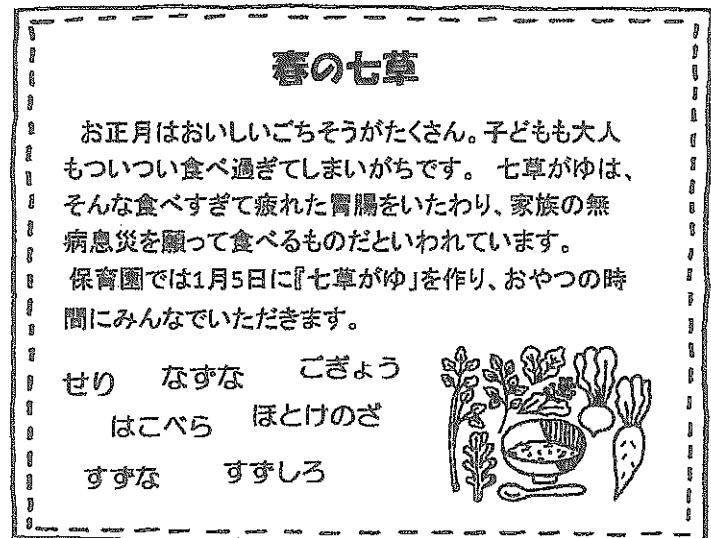 春の七草
お正月はおいしいごちそうがたくさん。子どもも大人
もついつい食べ過ぎてしまいがちです。 七草がゆは、
そんな食べすぎて疲れた胃腸をいたわり、家族の無
病息災を願って食べるものだといわれています。
保育園では1月5日に『七草がゆ」を作り、おやつの時
間にみんなでいただきます。
せり なずな ごぎょう
はこべら ほとけのざ
すずな すずしろ